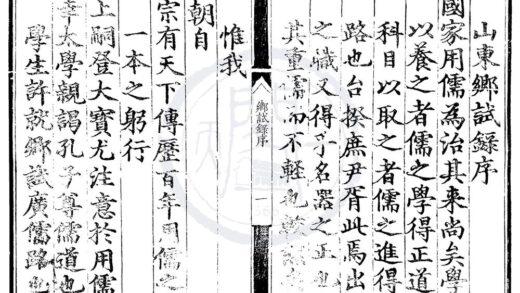 山東鄉試錄序
國家用儒為治其來尚矣學
以養之者儒之學得正道
科目以取之者儒之進得
路也台揆庶尹胥此焉出
之職又得乎名器之正也
其重儒而不輕也
鄉試錄序
一
惟我
朝自
宗有天下傳歷百年用儒之
一本之躬行
上嗣登大寶尤注意於用儒
幸太學親謁孔子尊儒道也
學生許就鄉試廣儒路也